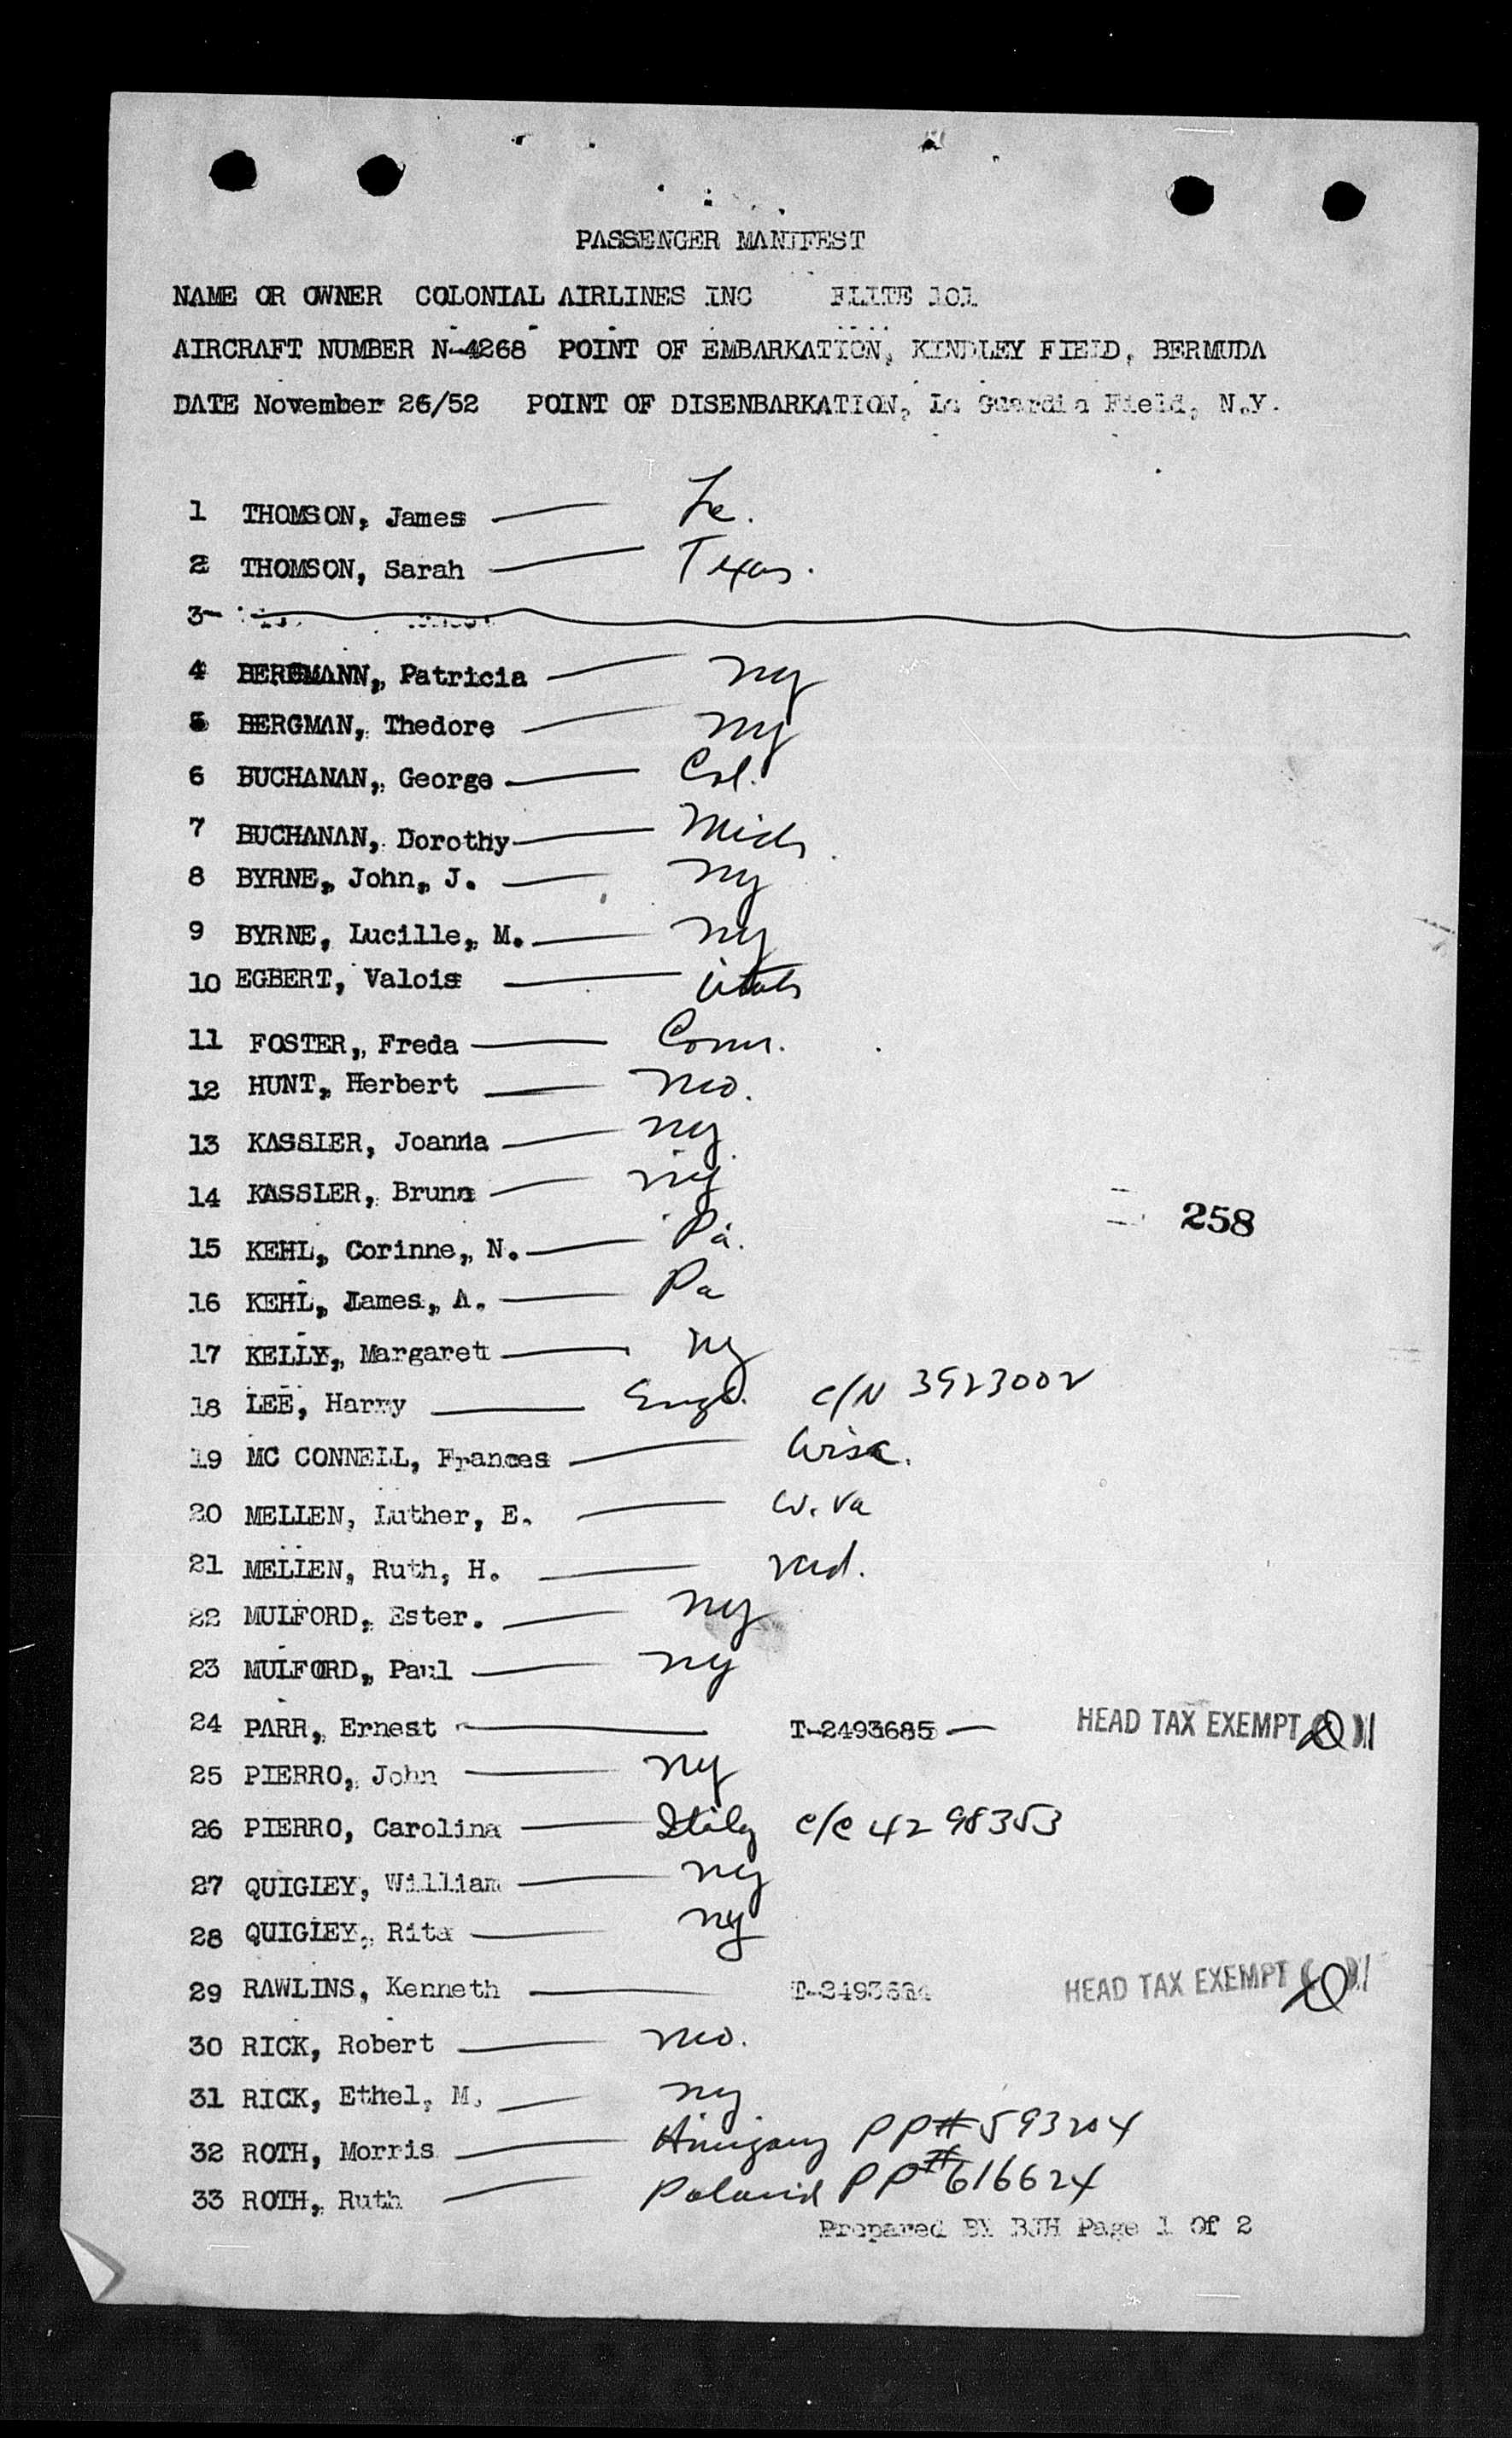 PASSENGER MANIFEST
NAME OR OWNER COLONIAL AIRLINES INC FLITE 101
AIRCRAFT NUMBER N-4268 POINT OF EMBARKATION, KINDLEY FIELD, BERMUDA
DATE November 26/52 POINT OF DISENBARKATION, La Guardia Field, N.Y.
1 THOMSON, James
2 THOMSON, Sarah Texas.
3-
4 BERGMANN, Patricia ny
5 BERGMAN, Thedore ny
6 BUCHANAN, George Col.
7 BUCHANAN, Dorothy Mich
8 BYRNE, John, J. ny
9 BYRNE, Lucille, M. ny
10 EGBERT, Valois Utah
11 FOSTER, Freda Conn.
12 HUNT, Herbert Mo.
13 KASSLER, Joanna ny
14 KASSLER, Bruno ny
15 KEHL, Corinne, N. Pa.
16 KEHL, James, A. Pa
17 KELLY, Margaret ny
18 LEE, Harry Engl. C/N 3923002
19 MC CONNELL, Frances Wisc.
20 MELLEN, Luther, E. W. Va
21 MELLEN, Ruth, H. Md.
22 MULFORD, Ester. ny
23 MULFORD, Paul ny
24 PARR, Ernest T-2493685 HEAD TAX EXEMPT
25 PIERRO, John ny
26 PIERRO, Carolina Italy C/C 4298353
27 QUIGLEY, William ny
28 QUIGLEY, Rita ny
29 RAWLINS, Kenneth HEAD TAX EXEMPT
30 RICK, Robert Mo.
31 RICK, Ethel, M. ny
32 ROTH, Morris PP# 593204
33 ROTH, Ruth Poland PP# 616624
258
Prepared BY BJH Page 1 Of 2